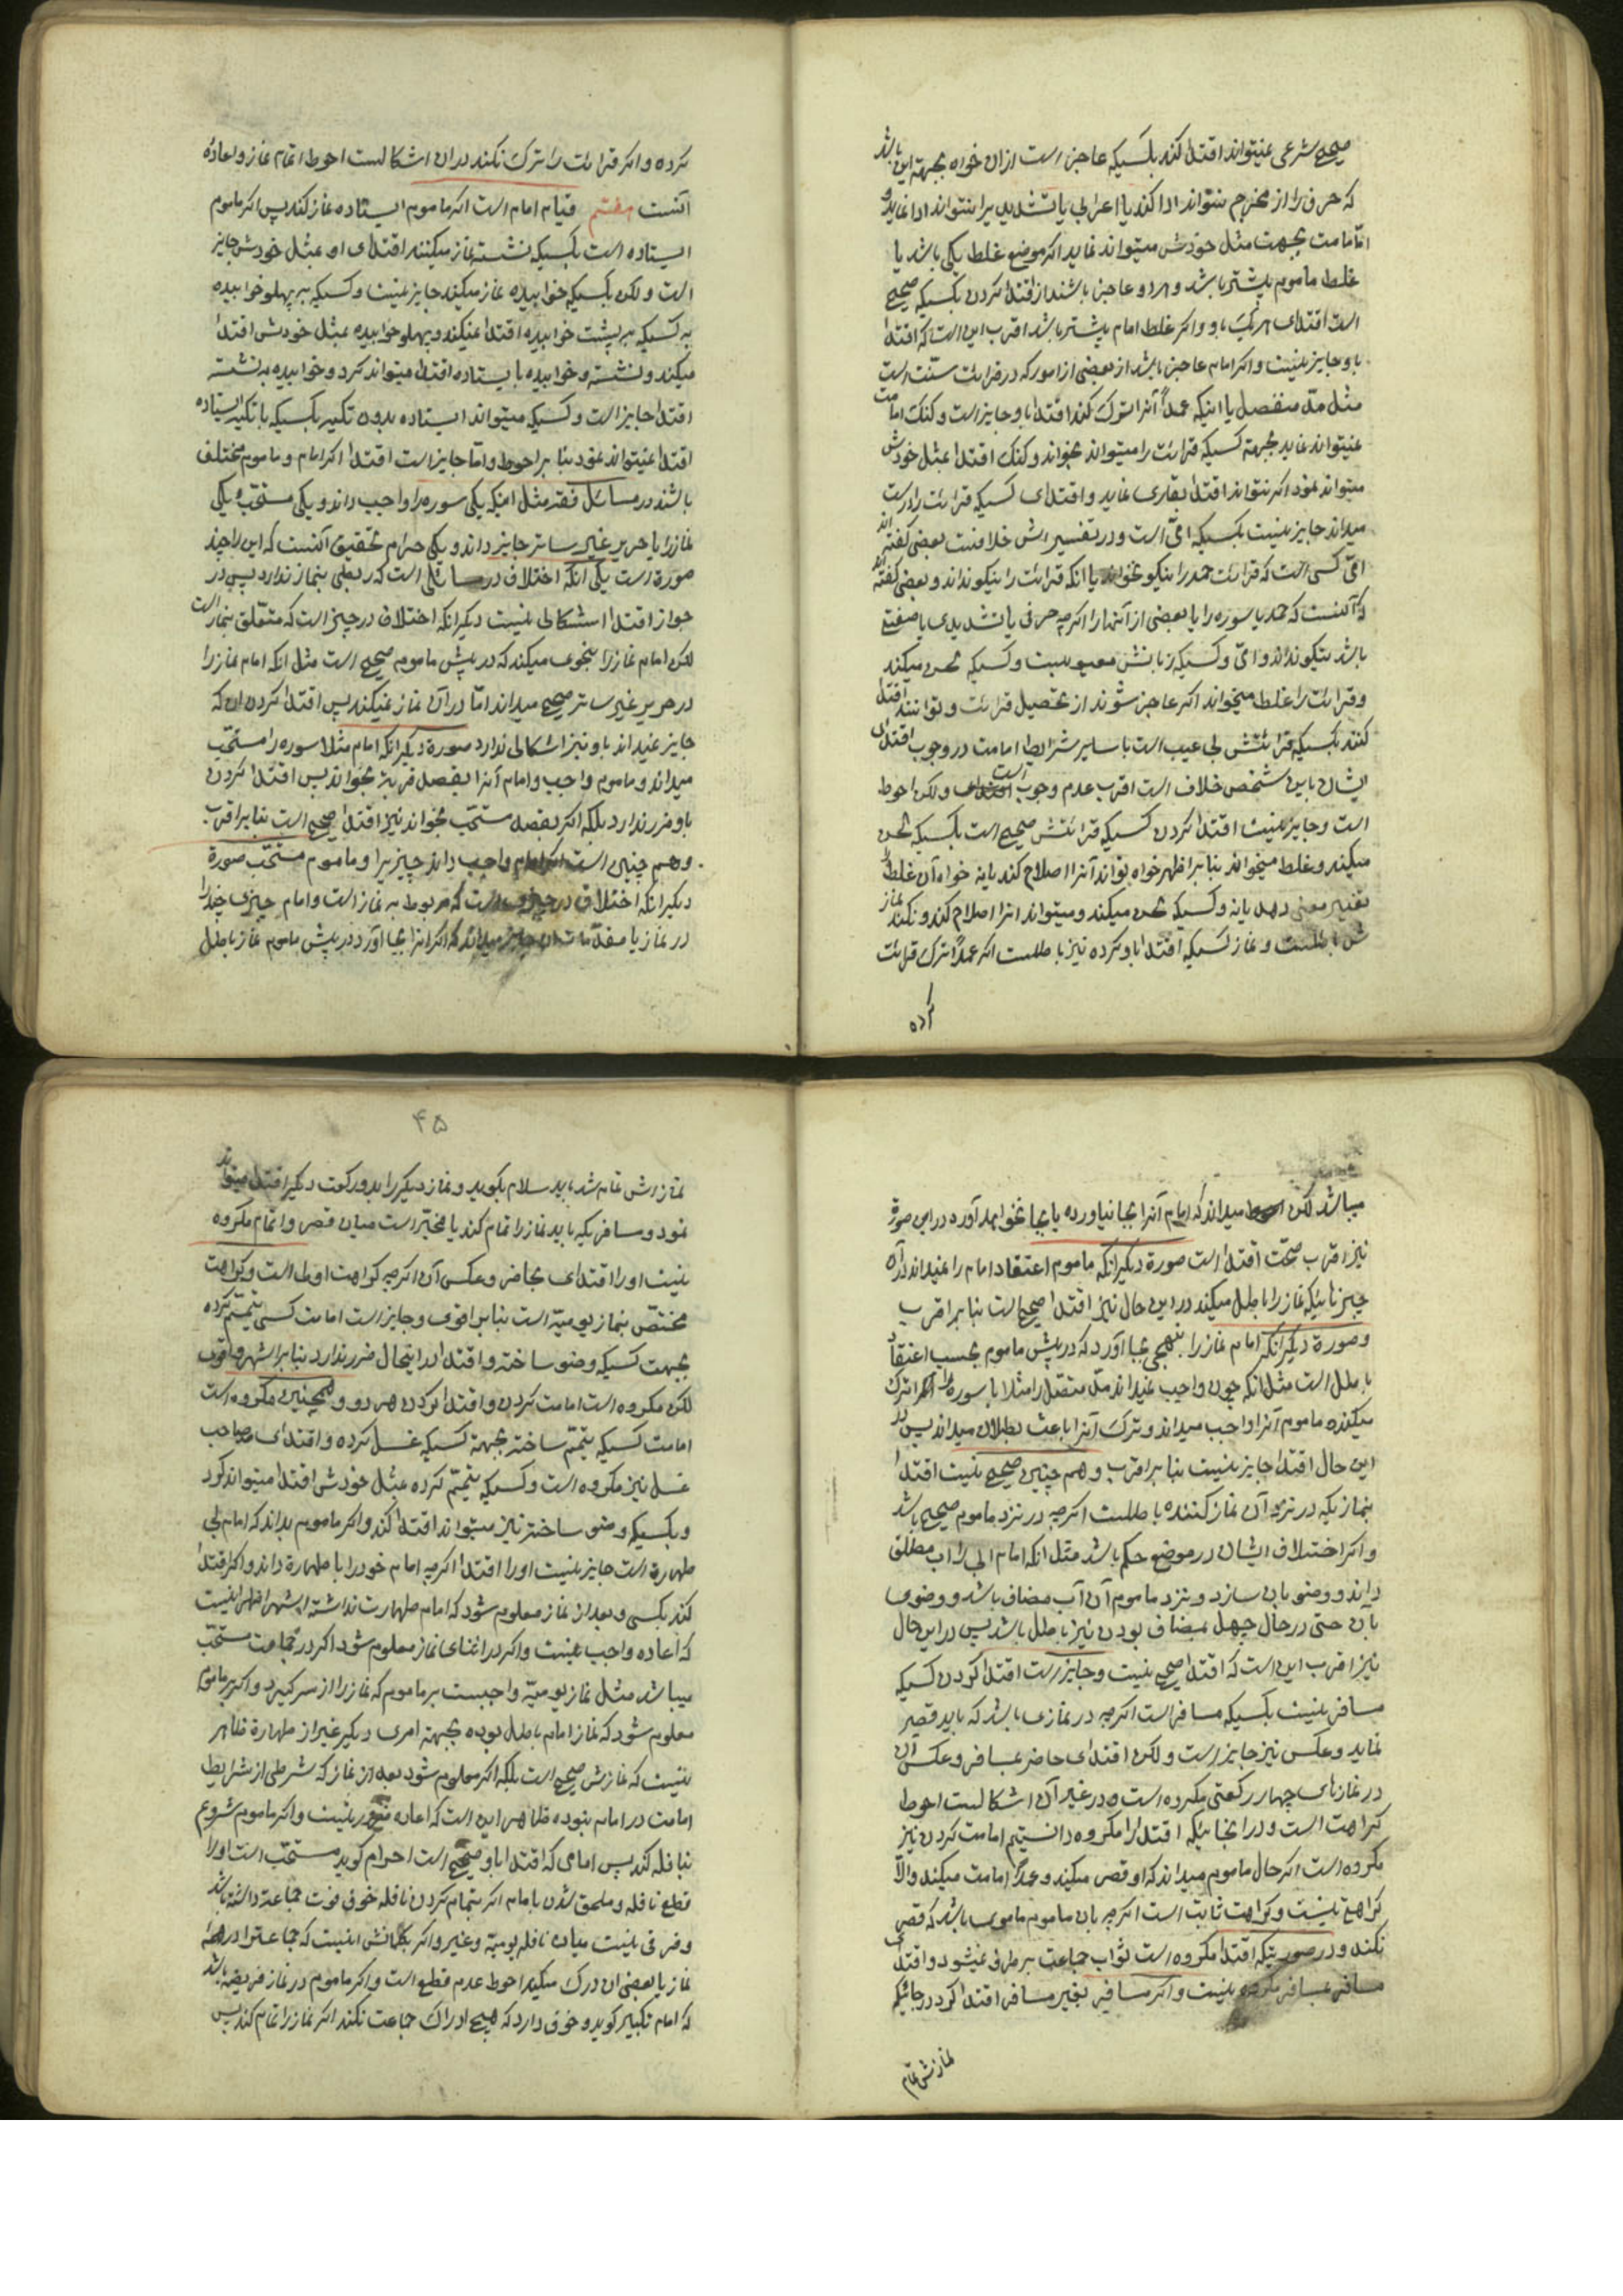 صحیح شرعی نمیتواند اقتدا کند بکسیکه عاجز است ازان خواه بجهة این باشد
که حرف را از مخرج نتواند ادا کند یا اعراب یا تشدید را نتواند ادا نماید و
امّا امامت بجهت مثل خودش میتواند نماید اکر موضع غلط یکی باشد یا
غلط ماموم بیشتر باشد و هر دو عاجز باشند از اقتدا کردن بکسیکه صحیح
است اقتدای هر یک باو و اکر غلط امام بیشتر باشد اقرب این است که اقتدا
باو جایز نیست و اکر امام عاجز باشد از بعضی از امور که در قرائت سنّت است
مثل مدّ منفصل یا اینکه عمداً آنرا ترک کند اقتدا باو جایز است و کنک امامت
نمیتواند نماید بجهة کسیکه قرائت را میتواند بخواند و کنک اقتدا بمثل خودش
میتواند نمود اکر نتواند اقتدا بقاری نماید و اقتدای کسیکه قرائت را درست
میداند جایز نیست بکسیکه امّی است و در تفسیرش خلافست بعضی کفته اند
امّی کسی است که قرائت حمد را نیکو نخواند یا انکه قرائت را نیکو نداند و بعضی کفته اند
که آنست که حمد یا سوره را یا بعضی از آنها را اکرچه حرفی یا تشدیدی یا صفتی
باشد نیکو نداند و امّی و کسیکه زبانش معیوبست و کسیکه لحن میکند
و قرائت را غلط میخواند اکر عاجز شوند از تحصیل قرائت و توانند اقتدا
کنند بکسیکه قرائتش بی عیب است با سایر شرایط امامت در وجوب اقتدای
ایشان باین شخص خلاف است اقرب عدم وجوب است ولکن احوط
است و جایز نیست اقتدا کردن کسیکه قرائتش صحیح است بکسیکه لحن
میکند و غلط میخواند بنا بر اظهر خواه تواند آنرا اصلاح کند یا نه خواه آن غلط
تغییر معنی دهد یا نه و کسیکه لحن میکند و میتواند انرا اصلاح کند و نکند نماز
ش باطلست و نماز کسیکه اقتدا باو کرده نیز باطلست اکر عمداً ترک قرائت
کرده
کرده و اکر قرائت را ترک نکند دران اشکالست احوط اتمام نماز و اعادهٔ
آنست هفتم قیام امام است اکر ماموم ایستاده نماز کند پس اکر ماموم
ایستاده است بکسیکه نشسته نماز میکند اقتدای او بمثل خودش جایز
است ولکن بکسیکه خوابیده نماز میکند جایز نیست و کسیکه بر پهلو خوابیده
به کسیکه بر پشت خوابیده اقتدا نمیکند و پهلو خوابیده بمثل خودش اقتدا
میکند و نشسته و خوابیده بایستاده اقتدا میتواند کرد و خوابیده به نشسته
اقتدا جایز است و کسیکه میتواند ایستاده بدون تکیه بکسیکه با تکیه ایستاده
اقتدا نمیتواند نمود بنا بر احوط و امّا جایز است اقتدا اکر امام و ماموم مختلف
باشند در مسائل فقه مثل اینکه یکی سوره را واجب داند و یکی مستحبّ و یکی
نماز را با حریر غیر ساتر جایز داند و یکی حرام تحقیق آنست که این را چند
صورة است یکی آنکه اختلاف در مسائلی است که ربطی بنماز ندارد پس در
جواز اقتدا اشکالی نیست دیکر انکه اختلاف در چیز است که متعلّق بنماز است
لکن امام نماز را بنحوی میکند که در پیش ماموم صحیح است مثل انکه امام نماز را
در حریر غیر ساتر صحیح میداند امّا در آن نماز نمیکند پس اقتدا کردن ان که
جایز نمیداند باو نیز اشکالی ندارد صورة دیکر انکه امام مثلا سوره را مستحبّ
میداند و ماموم واجب و امام آنرا بقصد قربة بخواند پس اقتدا کردن
باو ضرر ندارد بلکه اکر بقصد مستحبّ بخواند نیز اقتدا صحیح است بنا بر اقرب
و هم چنین است اکر امام واجب داند چیزیرا و ماموم مستحبّ صورة
دیکر انکه اختلاف در چیزیست که مربوط به نماز است و امام چیزی چند را
در نماز یا مقدّمات ان جایز میداند که اکر انرا بجا آورد در پیش ماموم نماز باطل
میباشد لکن میداند که امام آنرا بجا نیاورده یا بجا نخواهد آورد در این صورة
نیز اقرب صحّت اقتدا است صورة دیکر انکه ماموم اعتقاد امام را نمیداند در آن
چیزهائیکه نماز را باطل میکند در این حال نیز اقتدا صحیح است بنا بر اقرب
و صورة دیکر انکه امام نماز را بنهجی بجا آورد که در پیش ماموم بحسب اعتقاد
باطل است مثل انکه چون واجب نمیداند مدّ متصّل را مثلا یا سوره را انرا ترک
میکند و ماموم آنرا واجب میداند و ترک آنرا باعث بطلان میداند پس در
این حال اقتدا جایز نیست بنا بر اقرب و هم چنین صحیح نیست اقتدا
بنمازیکه در نزد آن نماز کننده باطلست اکرچه در نزد ماموم صحیح باشد
و اکر اختلاف ایشان در موضع حکم باشد مثل انکه امام ابی را آب مطلق
داند و وضو بان سازد و نزد ماموم آن آب مضاف باشد و وضوی
بان حتی در حال جهل بمضاف بودن نیز باطل باشد پس در این حال
نیز اقرب این است که اقتدا صحیح نیست و جایز است اقتدا کردن کسیکه
مسافر نیست بکسیکه مسافر است اکرچه در نمازی باشد که باید قصر
نماید و عکس نیز جایز است ولکن اقتدای حاضر بمسافر و عکس آن
در نمازهای چهار رکعتی مکروه است و در غیر آن اشکالست احوط
کراهت است و در انجائیکه اقتدا را مکروه دانستیم امامت کردن نیز
مکروه است اکر حال ماموم میداند که او قصر میکند و عمداً امامت میکند والاّ
کراهة نیست و کراهت ثابت است اکرچه بان ماموم مامومی باشد که قصر
نکند و در صورتیکه اقتدا مکروه است ثواب جماعت برطرف نمیشود و اقتدای
مسافر بمسافر مکروه نیست و اکر مسافر بغیر مسافر اقتدا کرد در جائیکه
نمازش تمام
۴۵
نمازش تمام شد باید سلام بکوید و نماز دیکر را بدو رکعت دیکر اقتدا میتواند
نمود و مسافریکه باید نماز را تمام کند یا مخیّر است میان قصر و اتمام مکروه
نیست او را اقتدای بحاضر و عکس آن اکرچه کراهت اولی است و کراهت
مختصّ بنماز یومیّه است بنا بر اقوی و جایز است امامت کسی تیمّم کرده
بجهت کسیکه وضو ساخته و اقتدا در اینحال ضرر ندارد بنا بر اشهر و اقوی
لکن مکروه است امامت کردن و اقتدا کردن هر دو و همچنین مکروه است
امامت کسیکه تیمّم ساخته بجهة کسیکه غسل کرده و اقتدای صاحب
غسل نیز مکروه است و کسیکه تیمّم کرده بمثل خودش اقتدا میتواند کرد
و بکسیکه وضو ساخته نیز میتواند اقتدا کند و اکر ماموم بداند که امام بی
طهارة است جایز نیست او را اقتدا اکرچه امام خود را با طهارة داند و اکر اقتدا
کند بکسی و بعد از نماز معلوم شود که امام طهارت نداشته اشهر اظهر اینست
که اعاده واجب نیست و اکر در اثنای نماز معلوم شود اکر در جماعت مستحبّ
میباشد مثل نماز یومیّه واجبست بر ماموم که نماز را از سر کیرد و اکر بر ماموم
معلوم شود که نماز امام باطل بوده بجهة امری دیکر غیر از طهارة ظاهر
اینست که نمازش صحیح است بلکه اکر معلوم شود بعد از نماز که شرطی از شرایط
امامت در امام نبوده ظاهر این است که اعاده ضرور نیست و اکر ماموم شروع
بنافله کند پس امامی که اقتدا باو صحیح است احرام کوید مستحبّ است او را
قطع نافله و ملحق شدن بامام اکر بتمام کردن نافله خوف فوت جماعة داشته باشد
و فرقی نیست میان نافله یومیّه و غیر و اکر بکمانش اینست که جماعترا در همه
نماز یا بعضی ان درک میکند احوط عدم قطع است و اکر ماموم در نماز فریضه باشد
که امام تکبیر کوید و خوف دارد که هیچ ادراک جماعت نکند اکر نماز را تمام کند پس